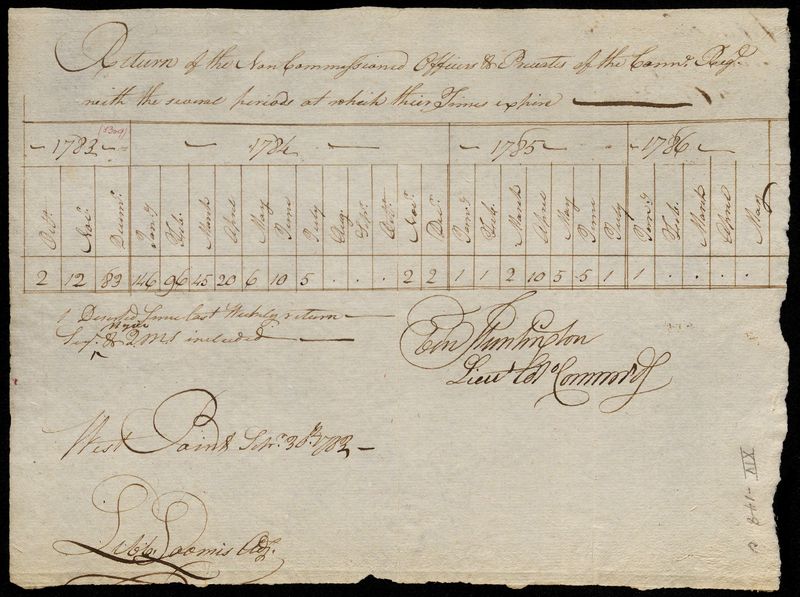 Return of the Non Commissioned Officers & Privates of the Connt. Regt.
with the several periods at which their Times expire
1783 1784 1785 1786
Octr. Novr. Decemr. Jany Feb. March April May June July Aug Sept. Octr. Novr. Decr. Jany Feb. March April May June July Jany Feb. March April May
2 12 83 146 96 45 20 6 10 5 . . . 2 2 1 1 2 10 5 5 1 1 . . . .
1 Deserted Since last Weekly return
Major
Serj. & 2 Ms included
Eb. Huntington
Lieut Colo Commandt
West Point Septr. 30th 1783
Lebb. Loomis Adjt.
XIV - 148